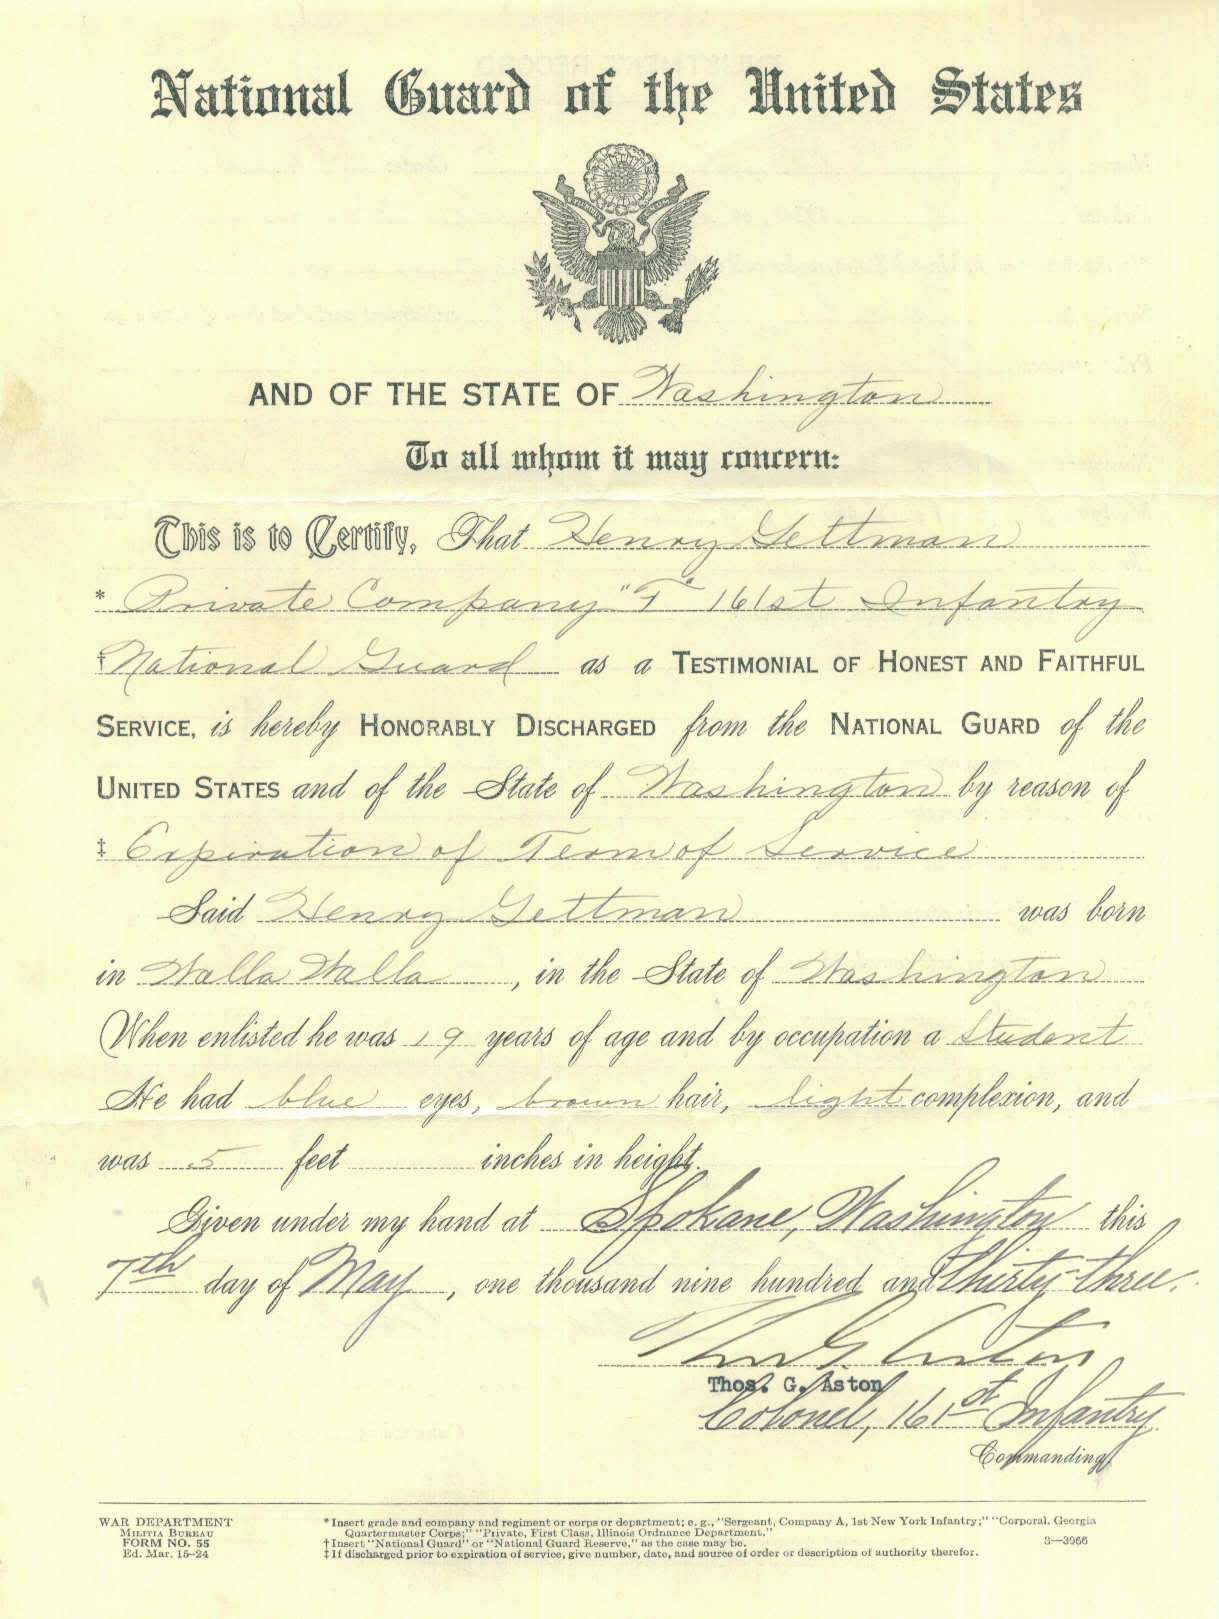 National Guard of the United States
AND OF THE STATE OF Washington
To all whom it may concern:
This is to Certify, That Henry Gettman
* Private Company "I" 161st Infantry
† National Guard as a TESTIMONIAL OF HONEST AND FAITHFUL
SERVICE, is hereby HONORABLY DISCHARGED from the NATIONAL GUARD of the
UNITED STATES and of the State of Washington by reason of
‡ Expiration of Term of Service
Said Henry Gettman was born
in Walla Walla, in the State of Washington
When enlisted he was 19 years of age and by occupation a Student
He had blue eyes, brown hair, light complexion, and
was 5 feet inches in height.
Given under my hand at Spokane, Washington this
7th day of May, one thousand nine hundred and thirty-three.
Thos. G. Aston
Thos. G. Aston
Colonel, 161st Infantry
Commanding.
WAR DEPARTMENT
MILITIA BUREAU
FORM NO. 55
Ed. Mar. 15-24
* Insert grade and company and regiment or corps or department; e. g., "Sergeant, Company A, 1st New York Infantry;" "Corporal, Georgia
Quartermaster Corps;" "Private, First Class, Illinois Ordnance Department."
† Insert "National Guard" or "National Guard Reserve," as the case may be.
‡ If discharged prior to expiration of service, give number, date, and source of order or description of authority therefor.
3—3966